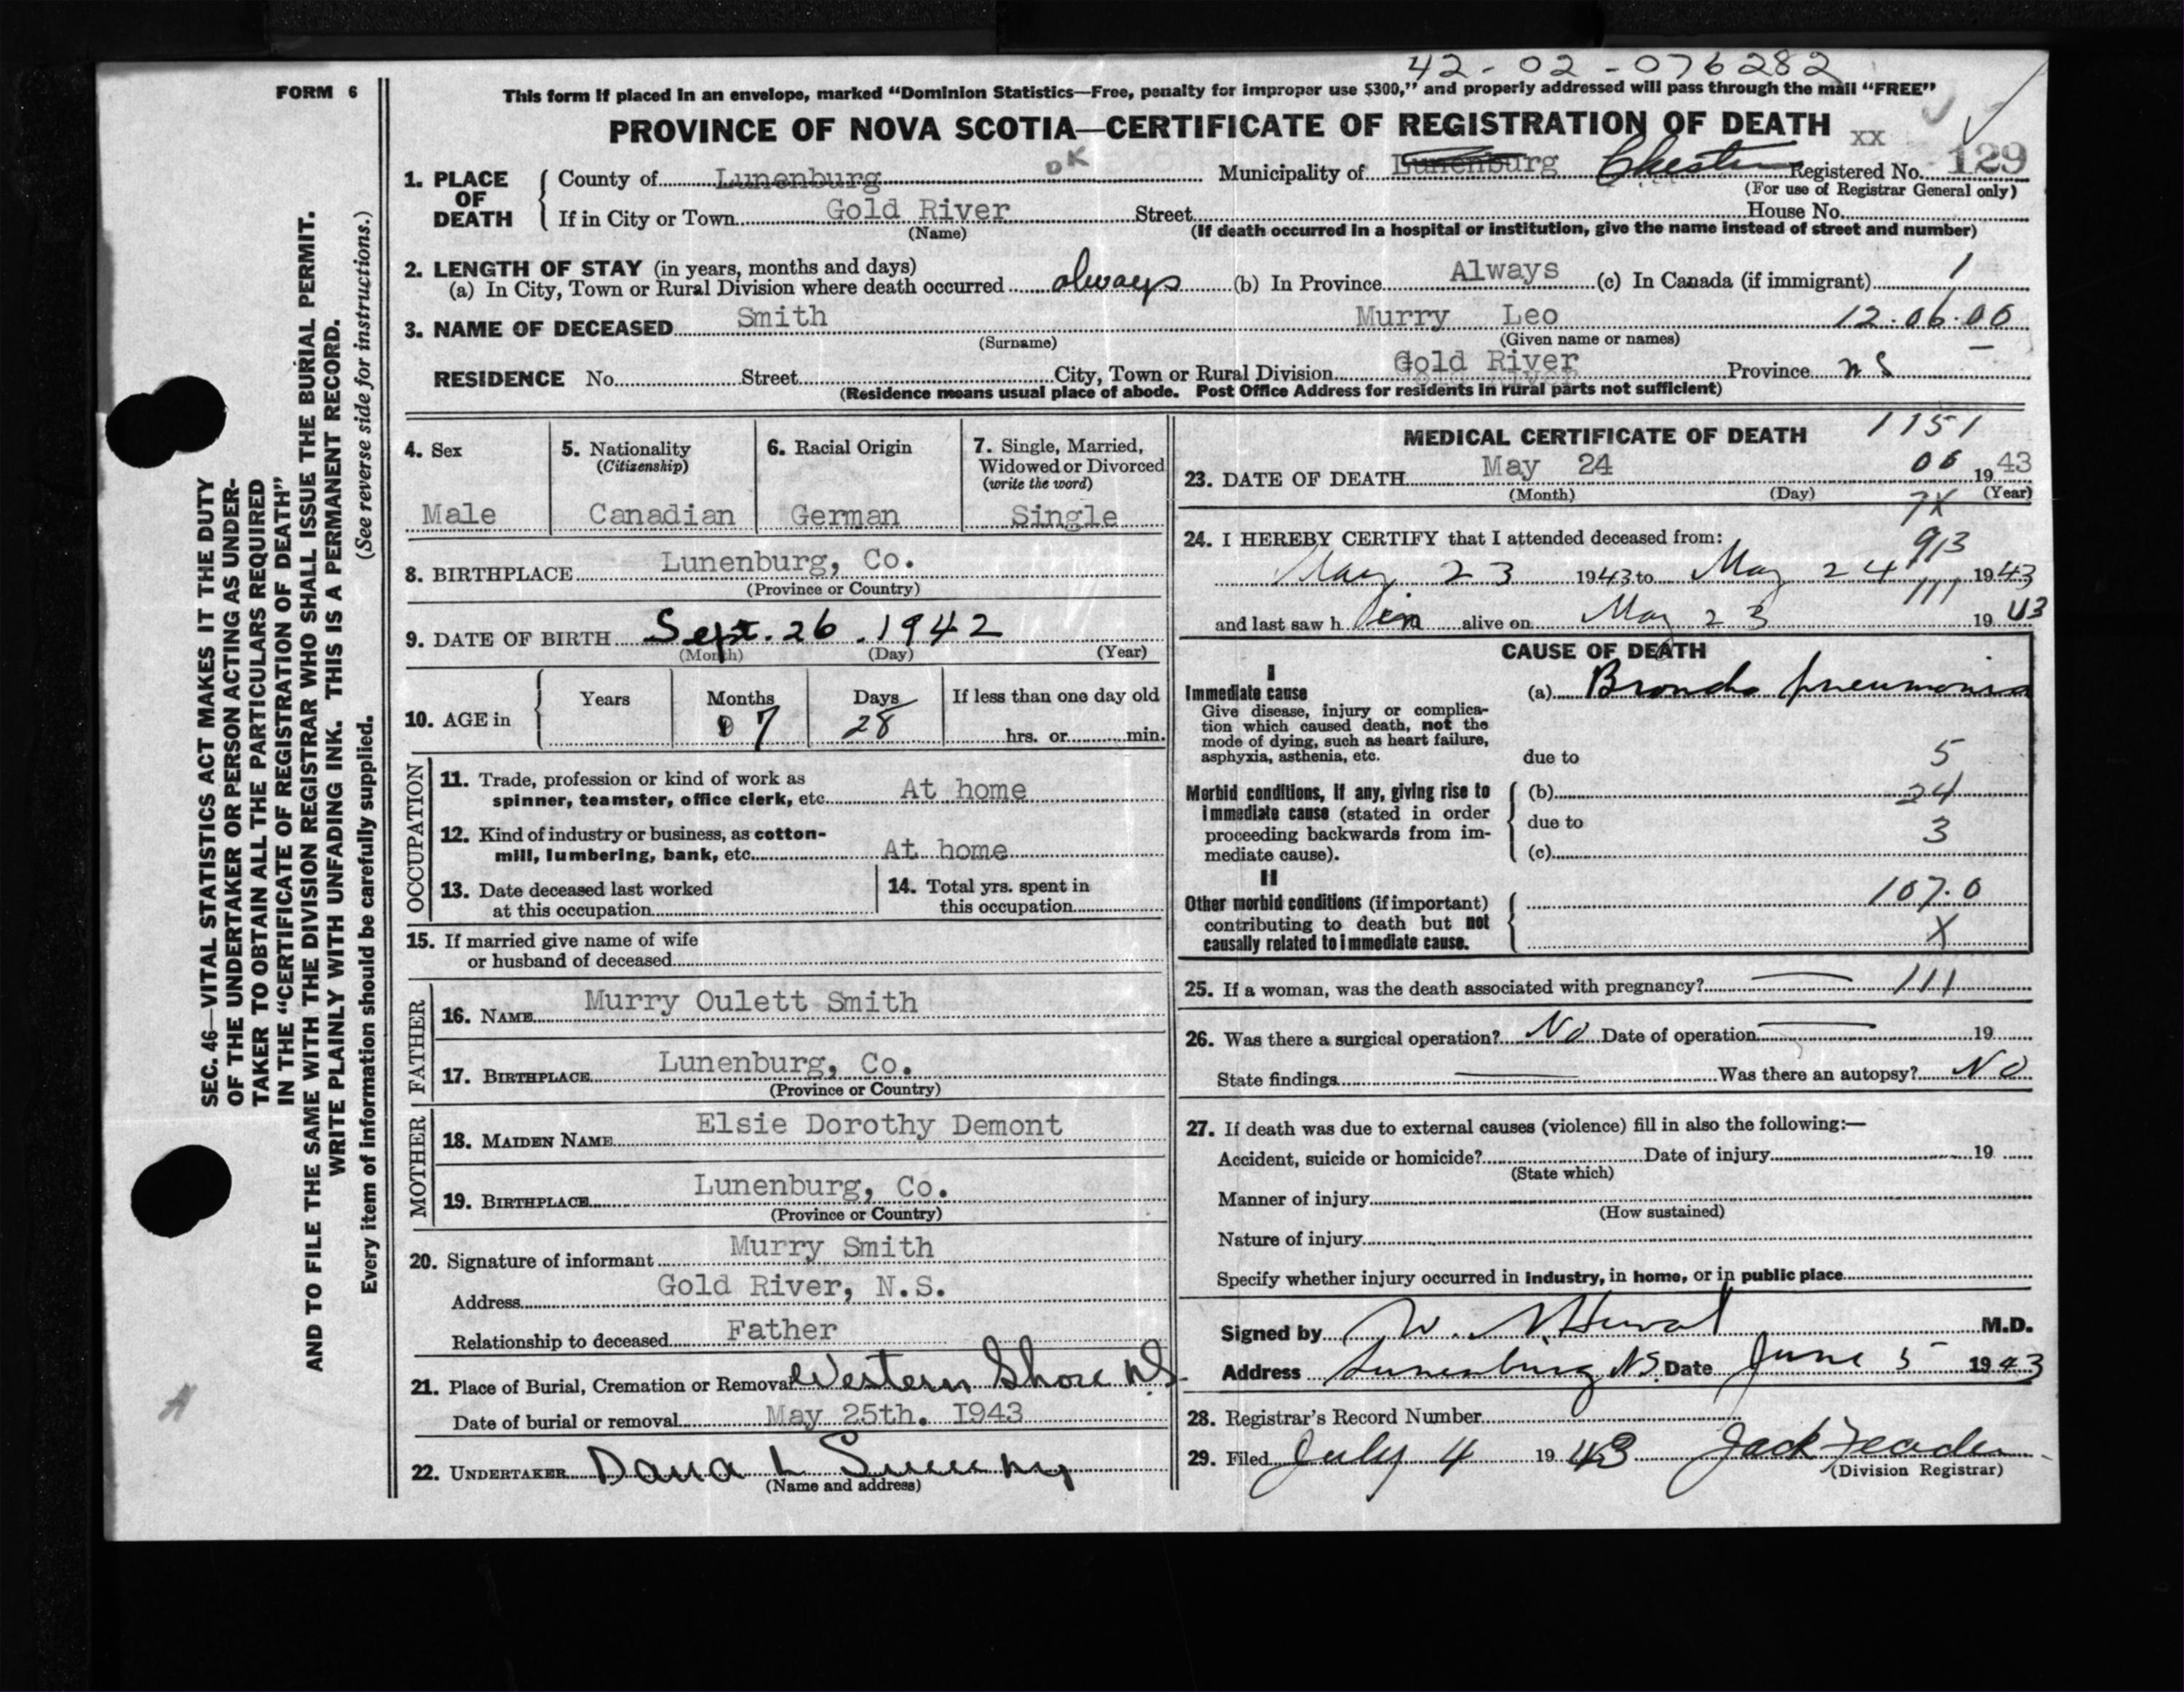 42-02-076282
FORM 6
This form if placed in an envelope, marked "Dominion Statistics—Free, penalty for improper use $300," and properly addressed will pass through the mail "FREE"
PROVINCE OF NOVA SCOTIA—CERTIFICATE OF REGISTRATION OF DEATH
XX
1. PLACE OF DEATH
County of Lunenburg OK Municipality of Lunenburg Chester Registered No. 129
(For use of Registrar General only)
If in City or Town Gold River Street House No.
(Name) (If death occurred in a hospital or institution, give the name instead of street and number)
2. LENGTH OF STAY (in years, months and days)
(a) In City, Town or Rural Division where death occurred always (b) In Province Always (c) In Canada (if immigrant) 1
3. NAME OF DECEASED Smith Murry Leo 12.06.06
(Surname) (Given name or names)
RESIDENCE No. Street City, Town or Rural Division Gold River Province NS
(Residence means usual place of abode. Post Office Address for residents in rural parts not sufficient)
4. Sex
Male
5. Nationality
(Citizenship)
Canadian
6. Racial Origin
German
7. Single, Married,
Widowed or Divorced
(write the word)
Single
8. BIRTHPLACE Lunenburg, Co.
(Province or Country)
9. DATE OF BIRTH Sept. 26. 1942
(Month) (Day) (Year)
10. AGE in
Years Months Days If less than one day old
7 28 hrs. or min.
OCCUPATION
11. Trade, profession or kind of work as
spinner, teamster, office clerk, etc. At home
12. Kind of industry or business, as cotton-
mill, lumbering, bank, etc. At home
13. Date deceased last worked
at this occupation
14. Total yrs. spent in
this occupation
15. If married give name of wife
or husband of deceased
FATHER
16. NAME Murry Oulett Smith
17. BIRTHPLACE Lunenburg, Co.
(Province or Country)
MOTHER
18. MAIDEN NAME Elsie Dorothy Demont
19. BIRTHPLACE Lunenburg, Co.
(Province or Country)
20. Signature of informant Murry Smith
Address Gold River, N.S.
Relationship to deceased Father
21. Place of Burial, Cremation or Removal Western Shore N.S.
Date of burial or removal May 25th. I943
22. UNDERTAKER Dana L Sweeny
(Name and address)
MEDICAL CERTIFICATE OF DEATH 1151
23. DATE OF DEATH May 24 06 1943
(Month) (Day) (Year)
7X
24. I HEREBY CERTIFY that I attended deceased from:
913
May 23 1943 to May 24 1943
111
and last saw h im alive on May 23 1943
CAUSE OF DEATH
I
Immediate cause
Give disease, injury or complica-
tion which caused death, not the
mode of dying, such as heart failure,
asphyxia, asthenia, etc.
(a) Broncho pneumonia
due to 5
Morbid conditions, if any, giving rise to
immediate cause (stated in order
proceeding backwards from im-
mediate cause).
(b) 24
due to 3
(c)
II
Other morbid conditions (if important)
contributing to death but not
causally related to immediate cause.
107.0
X
25. If a woman, was the death associated with pregnancy? 111
26. Was there a surgical operation? No Date of operation 19
State findings Was there an autopsy? No
27. If death was due to external causes (violence) fill in also the following:—
Accident, suicide or homicide? Date of injury 19
(State which)
Manner of injury
(How sustained)
Nature of injury
Specify whether injury occurred in industry, in home, or in public place
Signed by W. N. M.D.
Address Lunenburg N.S. Date June 5 1943
28. Registrar's Record Number
29. Filed July 4 1943 Jack
(Division Registrar)
SEC. 46—VITAL STATISTICS ACT MAKES IT THE DUTY
OF THE UNDERTAKER OR PERSON ACTING AS UNDER-
TAKER TO OBTAIN ALL THE PARTICULARS REQUIRED
IN THE "CERTIFICATE OF REGISTRATION OF DEATH"
AND TO FILE THE SAME WITH THE DIVISION REGISTRAR WHO SHALL ISSUE THE BURIAL PERMIT.
WRITE PLAINLY WITH UNFADING INK. THIS IS A PERMANENT RECORD.
(See reverse side for instructions.)
Every item of information should be carefully supplied.